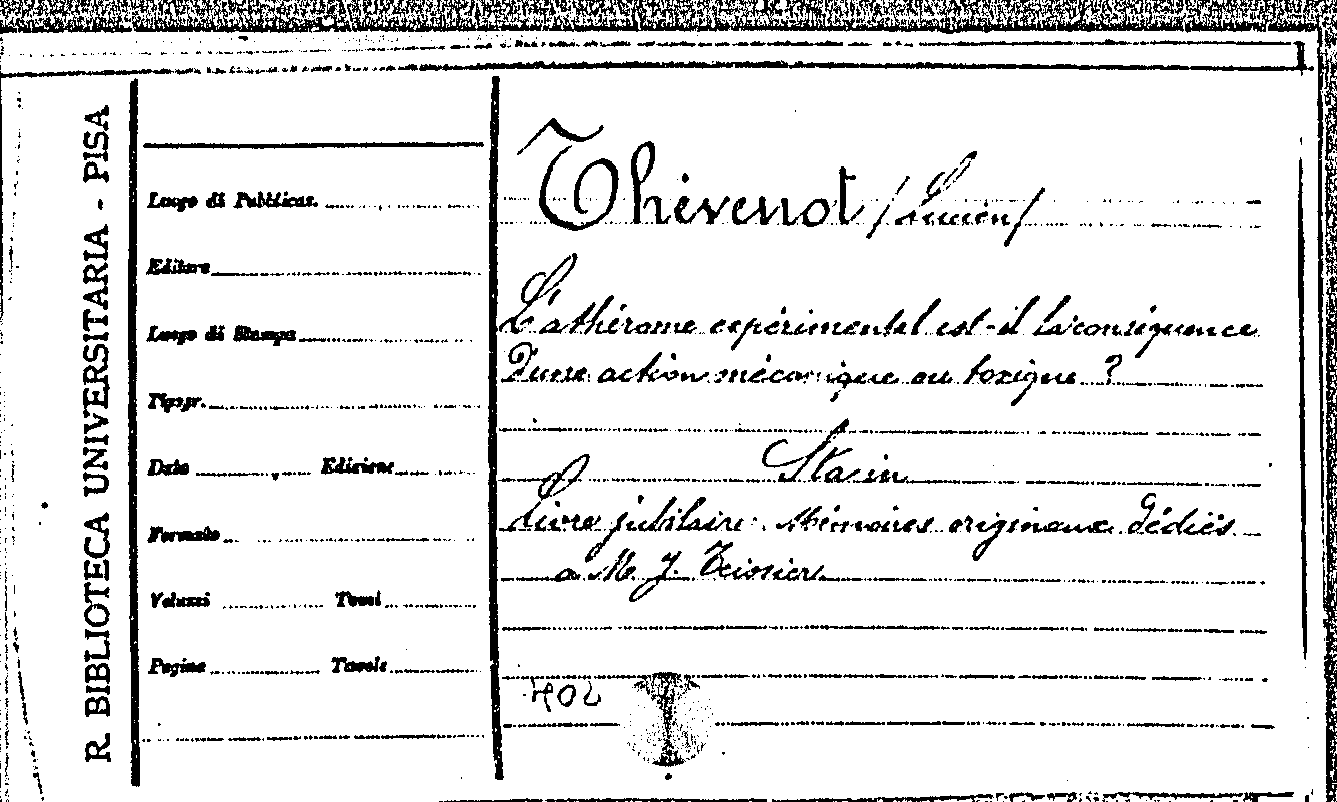 R. BIBLIOTECA UNIVERSITARIA - PISA
Luogo di Pubblicaz.
Editore
Luogo di Stampa
Tipogr.
Data Edizione
Formato
Volumi Tomi
Pagine Tavole
Thévenot /Lucien/
L'athérome expérimental est-il la conséquence
d'une action mécanique ou toxique ?
Sta in
Livre jubilaire. Mémoires originaux dédiés
a M. J. Teissier
402